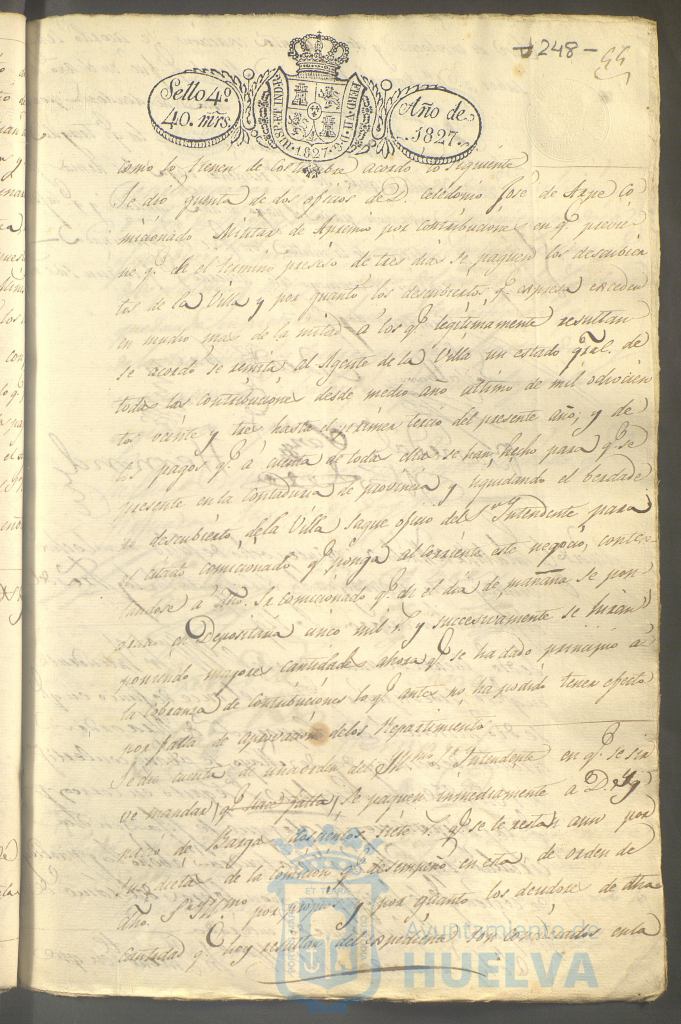 248 - 55
Sello 4º
40. mrs.
HISP. ET IND. R. FERD. VII. D. G. 1827.
Año de
1827.
como lo tienen de costumbre acordo lo siguiente
Se dio quenta de dos oficios de D. Celedonio José de Azpe Co
micionado Militar de Apremio por contribuciones en q.e previe
ne q.e en el termino preciso de tres dias se paguen los descubier
tos de la Villa y por quanto los descubiertos q.e expresa exceden
en mucho mas de la mitad a los q.e legitimamente resultan
se acordo se remita al Agente de la Villa un estado gral. de
todas las contribuciones desde medio año ultimo de mil ochocien
tos veinte y tres hasta el primer tercio del presente año; y de
los pagos q.e a cuenta de todas ellas se han hecho para q.e se
presente en la Contaduria de provincia y liquidando el berdade
ro descubierto de la Villa saque oficio del S.or Intendente para
el citado comicionado q.e ponga al corriente este negocio, contes
tandose a dho. Sr. comicionado q.e en el dia de mañana se pon
dran en Depositaria cinco mil r.s y succesivamente se hiran
poniendo mayores cantidades ahora q.e se ha dado principio a
la cobranza de Contribuciones lo q.e antes no ha podido tener efecto
por falta de aprovacion de los Repartimientos
Se dio cuenta de una orden del Yll.mo Sr. Intendente en q.e se sir
ve mandar, q.e hace falta, se paguen inmediatamente a D.
de Barga doscientos siete r.s q.e se le restan aun por
sus dietas de la comicion q.e desempeño en esta de orden de
dho. S. Yll.mo por propios y por quanto los deudores de dha
cantidad q.e hoy resultan del espediente son en la
Ayuntamiento de
HUELVA